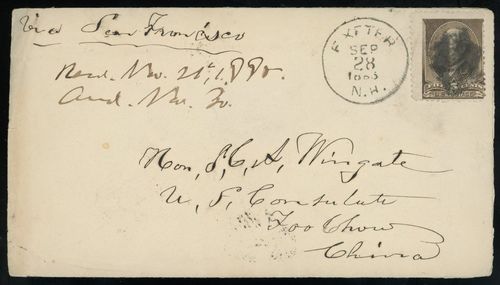 Via San Francisco
EXETER
SEP
28
N.H.
Recd. Nov. 21st, 1885.
Ansd. Nov. 30.
Hon, J, C, A, Wingate
U, S, Consulate
Foo Chow
China